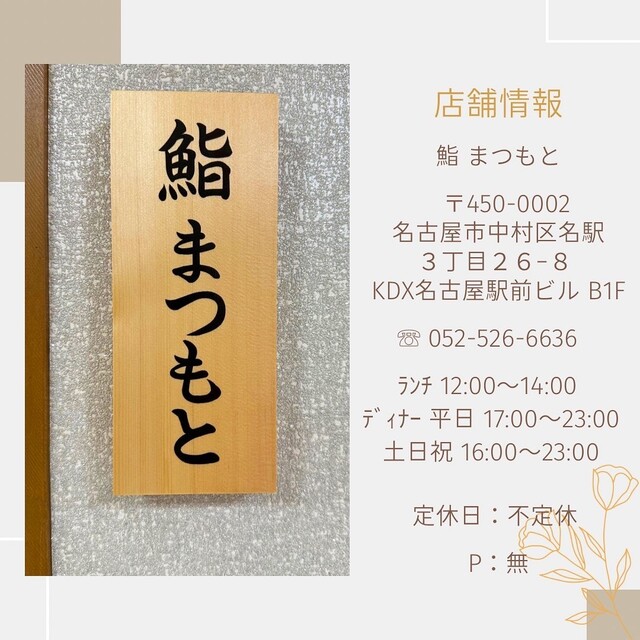 鮨 まつもと
店舗情報
鮨 まつもと
〒450-0002
名古屋市中村区名駅
３丁目２６−８
KDX名古屋駅前ビル B1F
☏ 052-526-6636
ﾗﾝﾁ 12:00〜14:00
ﾃﾞｨﾅｰ 平日 17:00〜23:00
土日祝 16:00〜23:00
定休日：不定休
P：無